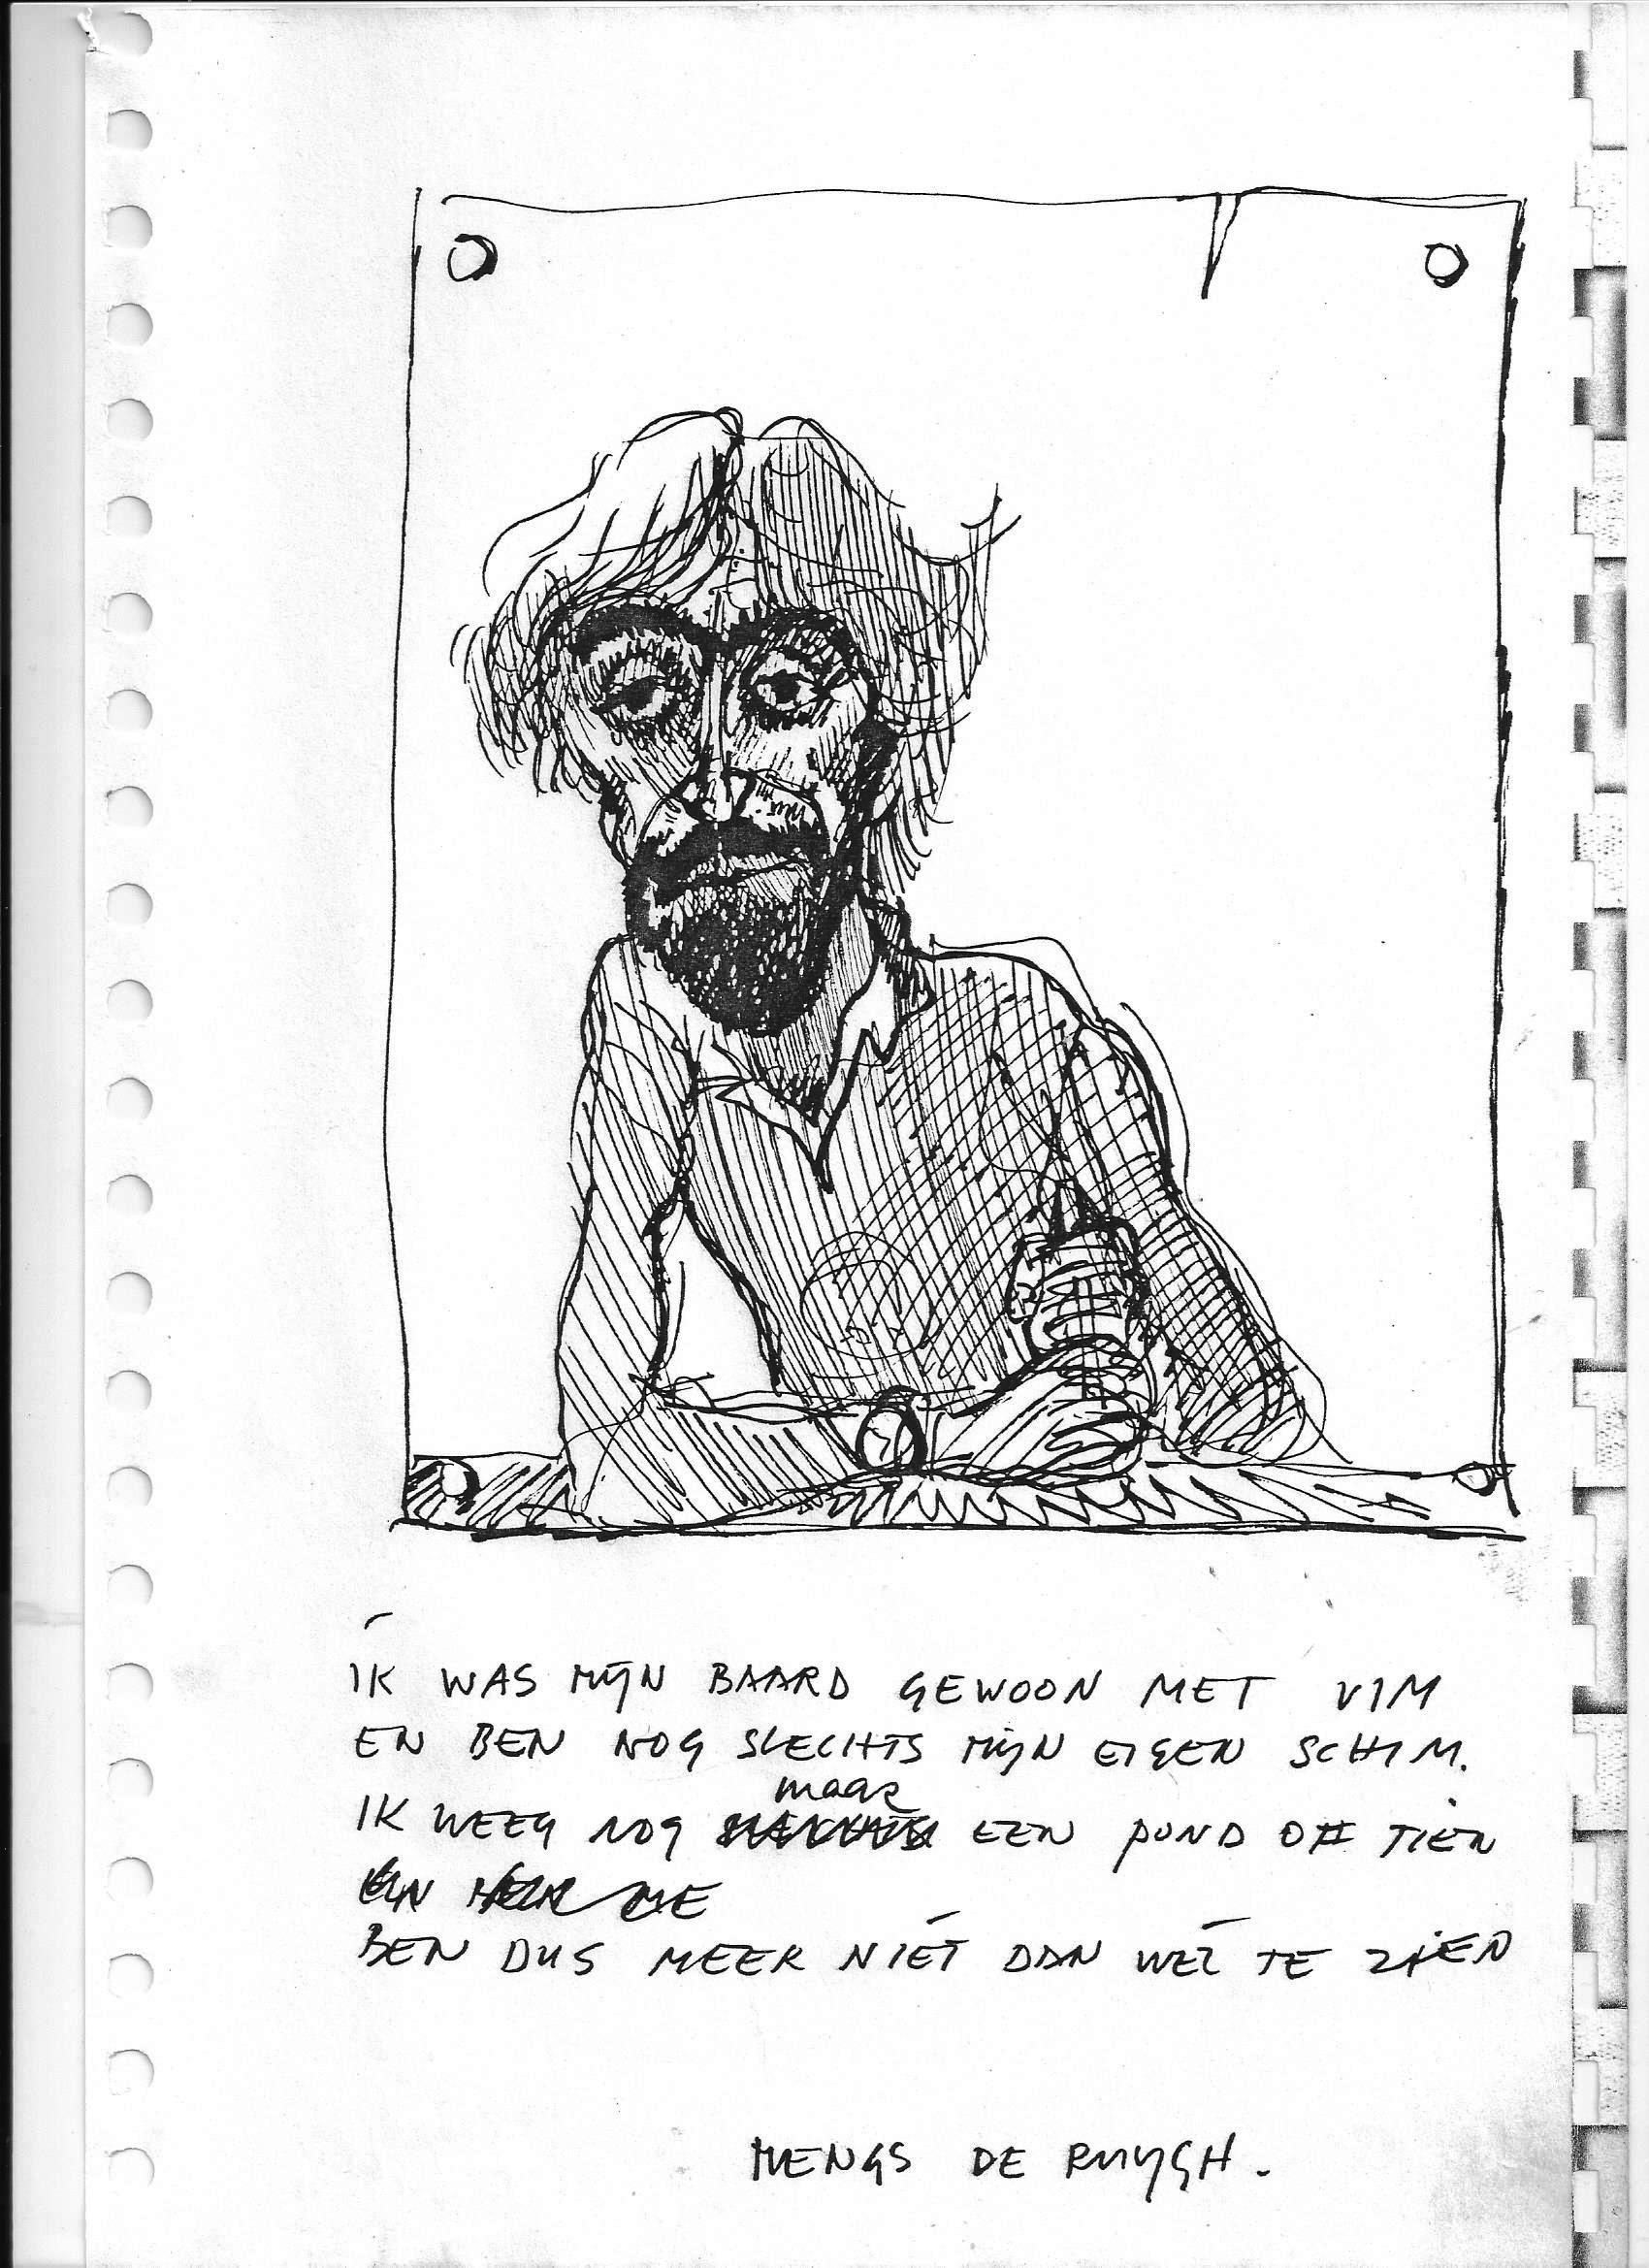 ÍK WAS MIJN BAARD GEWOON MET VIM
EN BEN NOG SLECHTS MIJN EIGEN SCHIM.
maar
IK WEEG NOG EEN POND OF TIEN
ME
BEN DUS MEER NIÉT DAN WÉL TE ZIEN
MENGS DE RUYGH.